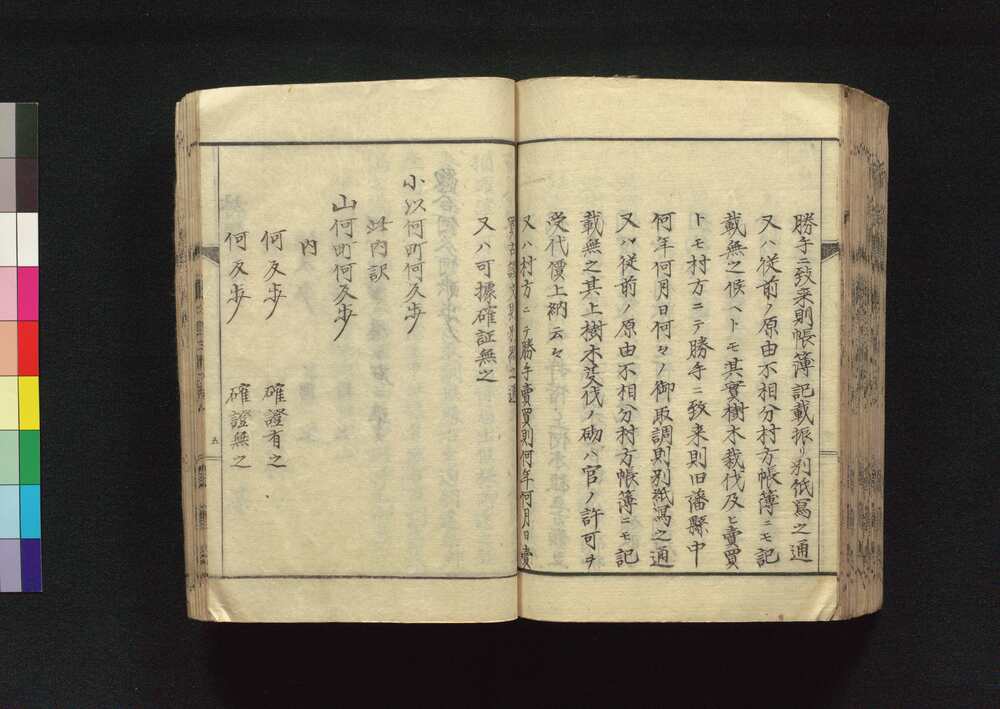 勝手ニ致来則帳簿記載振リ別紙寫之通
又ハ従前ノ原由不相分村方帳簿ニモ記
載無之候ヘトモ其實樹木栽伐及ヒ賣買
トモ村方ニテ勝手ニ致来則旧藩縣中
何年何月日何々ノ御取調則別紙寫之通
又ハ従前ノ原由不相分村方帳簿ニモ記
載無之其上樹木芟伐ノ砌ハ官ノ許可ヲ
受代價上納云々
又ハ村方ニテ勝手賣買則何年何月日賣
之通
又ハ可據確証無之
小以何町何反歩
此内訳
山何町何反歩
内
何反歩 確證有之
何反歩 確證無之
五